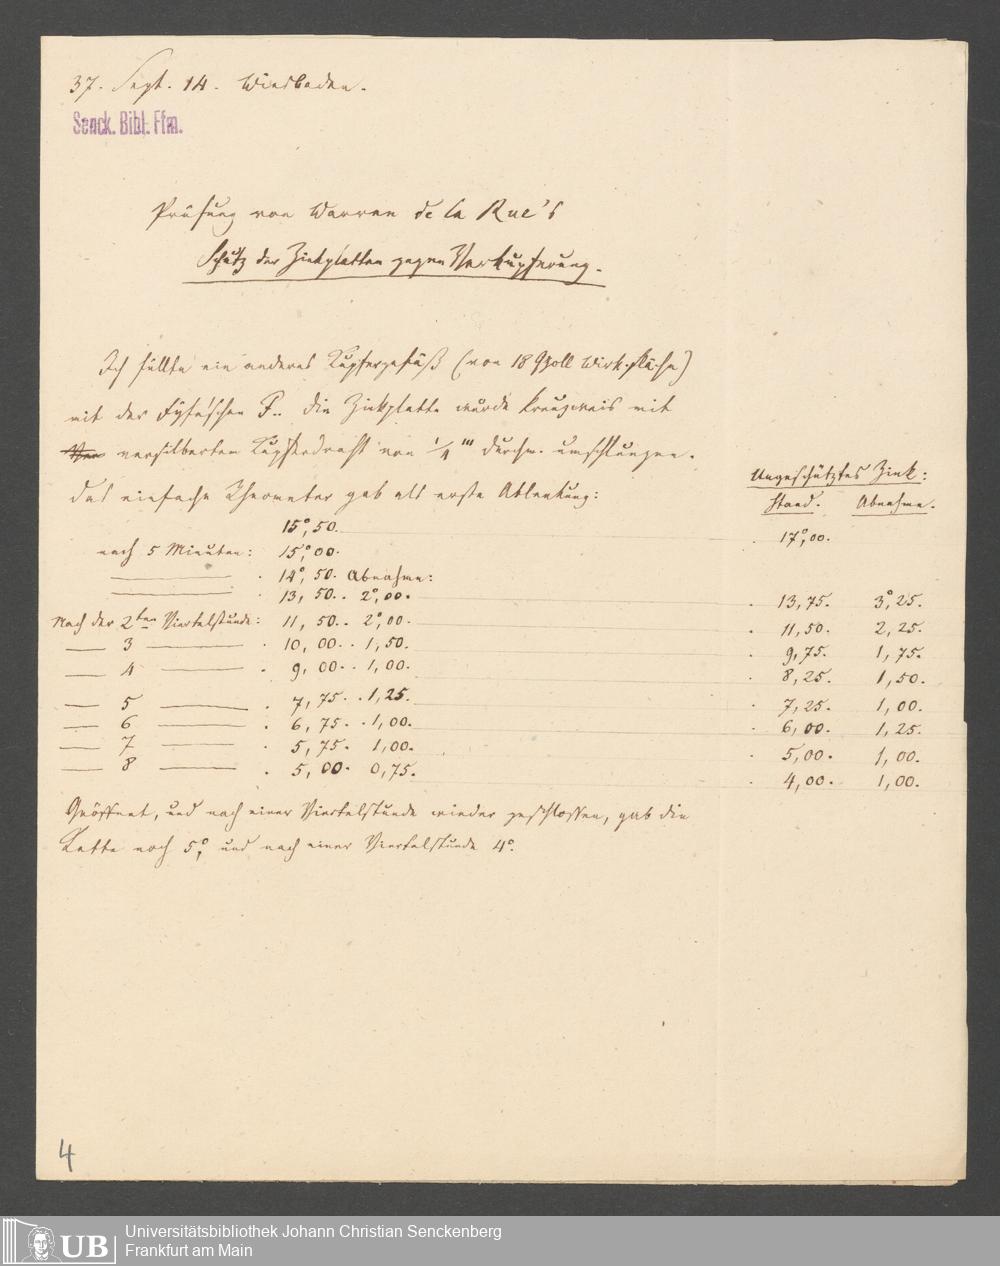 37. Sept. 14. Wiesbaden.
Senck. Bibl. Ffm.
Prüfung von Warren de la Rue's
Schutz der Zinkplatten gegen Verkupferung.
Ich füllte ein anderes Kupfergefäß (von 18 Qzoll Wirk.fläche)
mit der Fyfe'schen F.. die Zinkplatte wurde kreuzweis mit
Ver versilberten Kupferdraht von 1/4''' Durchm. umschlungen.
Das einfache Rheometer gab als erste Ablenkung:
Ungeschütztes Zink:
Stand. Abnahme.
15°,50. 17°,00.
nach 5 Minuten: 15°,00.
——— . 14°,50. Abnahme:
——— . 13,50.. 2°,00. . 13,75. 3°,25.
Nach der 2ten Viertelstunde: 11,50.. 2°,00. . 11,50. 2,25.
— 3 — . 10,00.. 1,50. . 9,75. 1,75.
— 4 — . 9,00.. 1,00. . 8,25. 1,50.
— 5 — . 7,75.. 1,25. . 7,25. 1,00.
— 6 — . 6,75.. 1,00. . 6,00. 1,25.
— 7 — . 5,75. 1,00. . 5,00. 1,00.
— 8 — . 5,00. 0,75. . 4,00. 1,00.
Geöffnet, und nach einer Viertelstunde wieder geschlossen, gab die
Kette noch 5°, und nach einer Viertelstunde 4°.
4
UB
Universitätsbibliothek Johann Christian Senckenberg
Frankfurt am Main